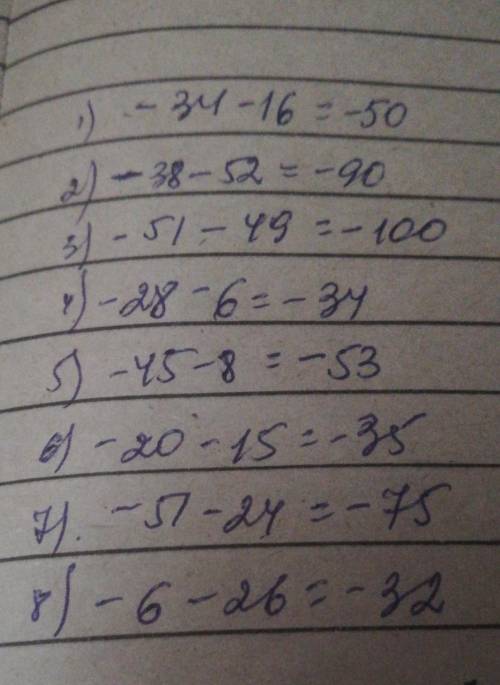 1) -34-16=-50
2) -38-52=-90
3) -51-49=-100
4) -28-6=-34
5) -45-8=-53
6) -20-15=-35
7) -51-24=-75
8) -6-26=-32